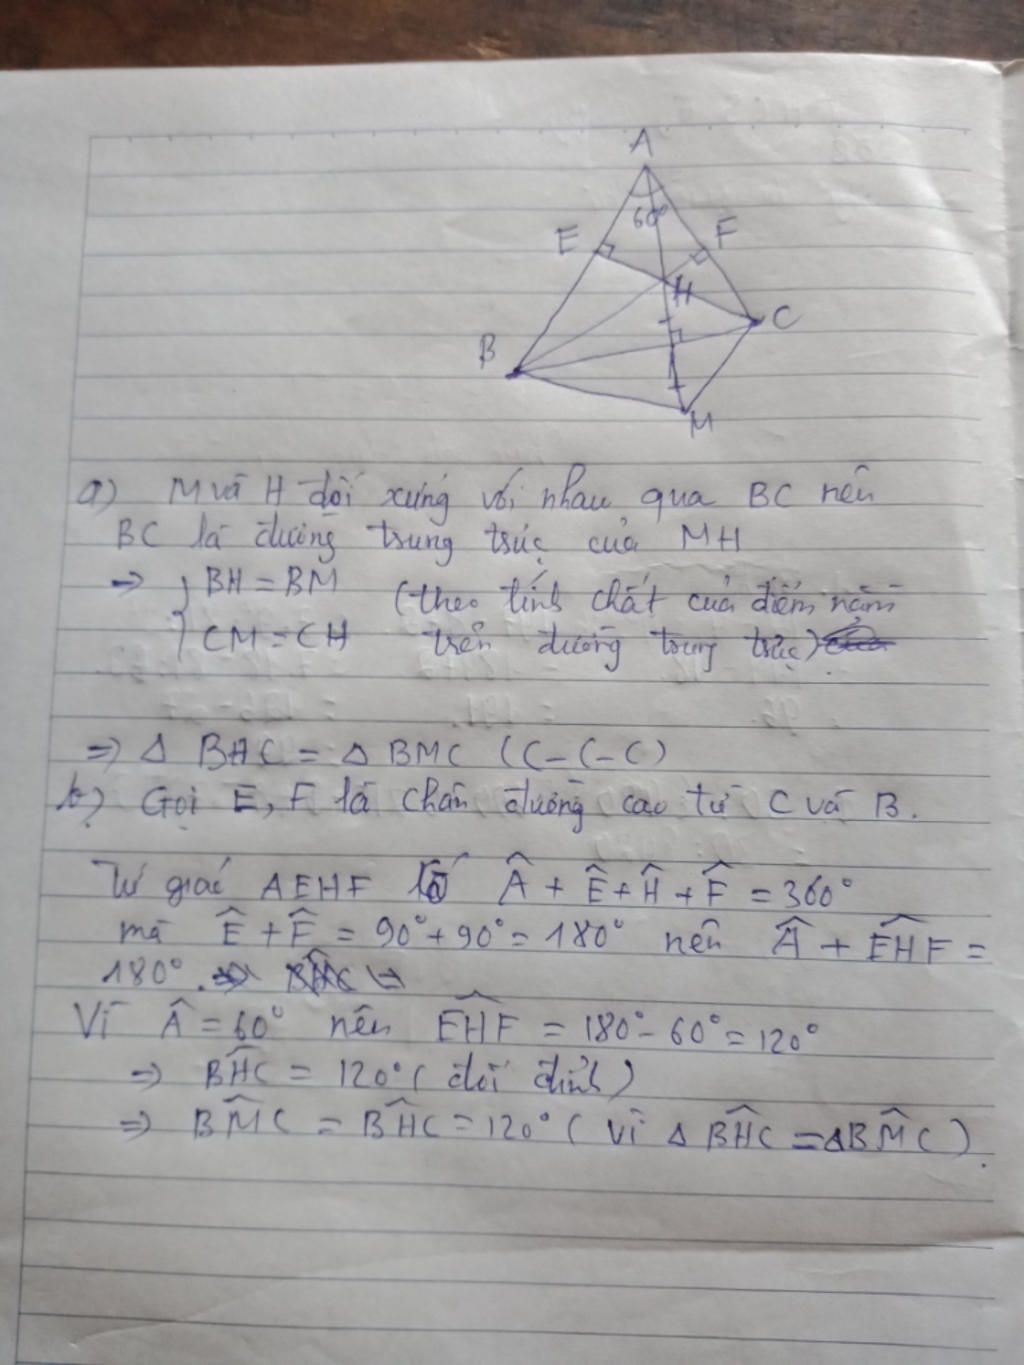 A
60°
E
F
H
C
B
M
a) M và H đối xứng với nhau qua BC nên
BC là đường trung trực của MH
=> { BH = BM (theo tính chất của điểm nằm
CM = CH trên đường trung trực)
=> Δ BHC = Δ BMC (C-C-C)
b) Gọi E, F là chân đường cao từ C và B.
Tứ giác AEHF có Â + Ê + Ĥ + F̂ = 360°
mà Ê + F̂ = 90° + 90° = 180° nên Â + EĤF =
180°.
Vì Â = 60° nên EĤF = 180° - 60° = 120°
=> BĤC = 120° (đối đỉnh)
=> BM̂C = BĤC = 120° (vì Δ BĤC = ΔBM̂C).